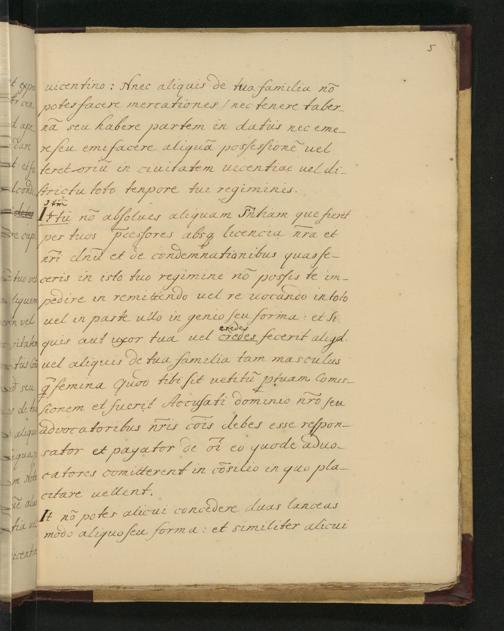 5
uicentino: Nnec aliquis de tua familia nō
potes facere mercationes / nec tenere taber-
nā seu habere partem in datiis nec eme-
re seu emi facere aliquā possessionē uel
teretoriū in ciuitatem uicentiae uel di-
strictu toto tenpore tui regiminis.
Itū nō absolues aliquam sñtiam que fieret
per tuos p̄cessores absq licencia n̄ra et
n̄ri cl̄nii et de condemnationibus quas fe-
ceris in isto tuo regimine nō possis te im-
pedire in remittendo uel re uocando in toto
uel in parte ullo in genio seu forma: et si
quis aut uxor tua uel credes fecerit aliqd
eredes
uel aliquis de tua familia tam masculus
q̄ femina Quod tibi sit uetitū ptuam comis-
sionem et fuerit Accusati dominio nr̄o seu
advocatoribus nr̄is cōis debes esse respon-
sator et payator de oī eo quod e aduo-
catores comitterent in cōsilio in quo pla-
citare uellent.
It nō potes alicui concedere duas lanceas
modo aliquo seu forma: et similiter alicui